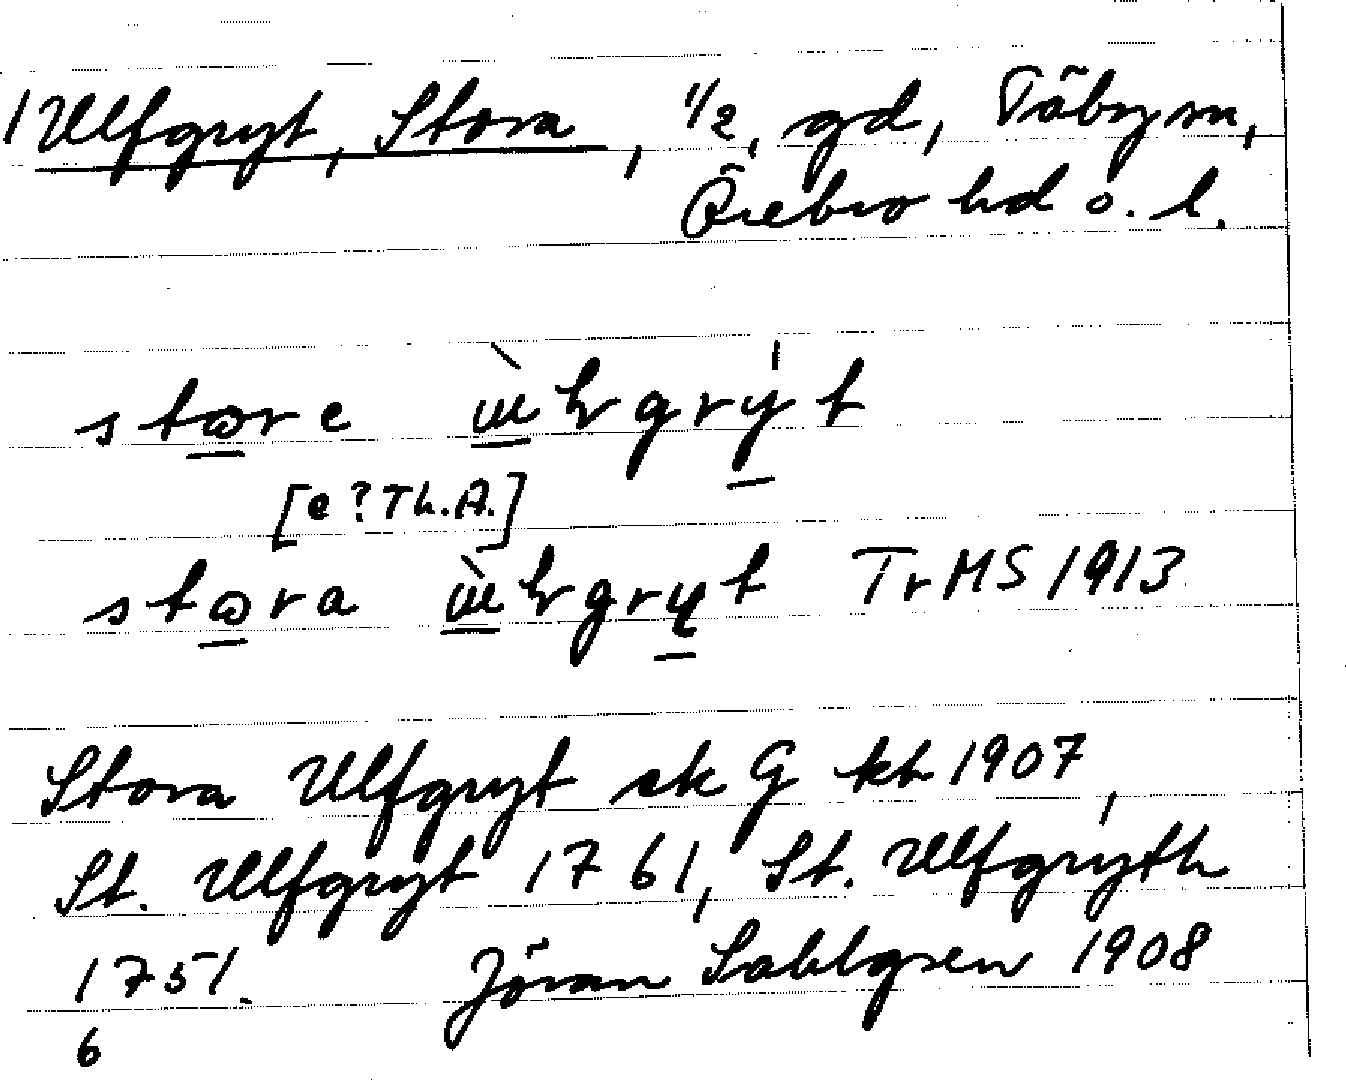 /Ulfgryt, Stora, 1/2, gd, Täby sn,
Örebro hd o. l.
[e? Th.A.]
Tr MS 1913
Stora Ulfgryt sk G kb 1907,
St. Ulfgryt 1761, St. Ulfgryth
1751. Jöran Sahlgren 1908
6